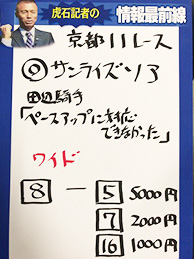 虎石記者の
情報最前線
京都11レース
◎サンライズソア
田辺騎手
「ペースアップに対応
できなかった」
ワイド
8 — 5 5000円
7 2000円
16 1000円